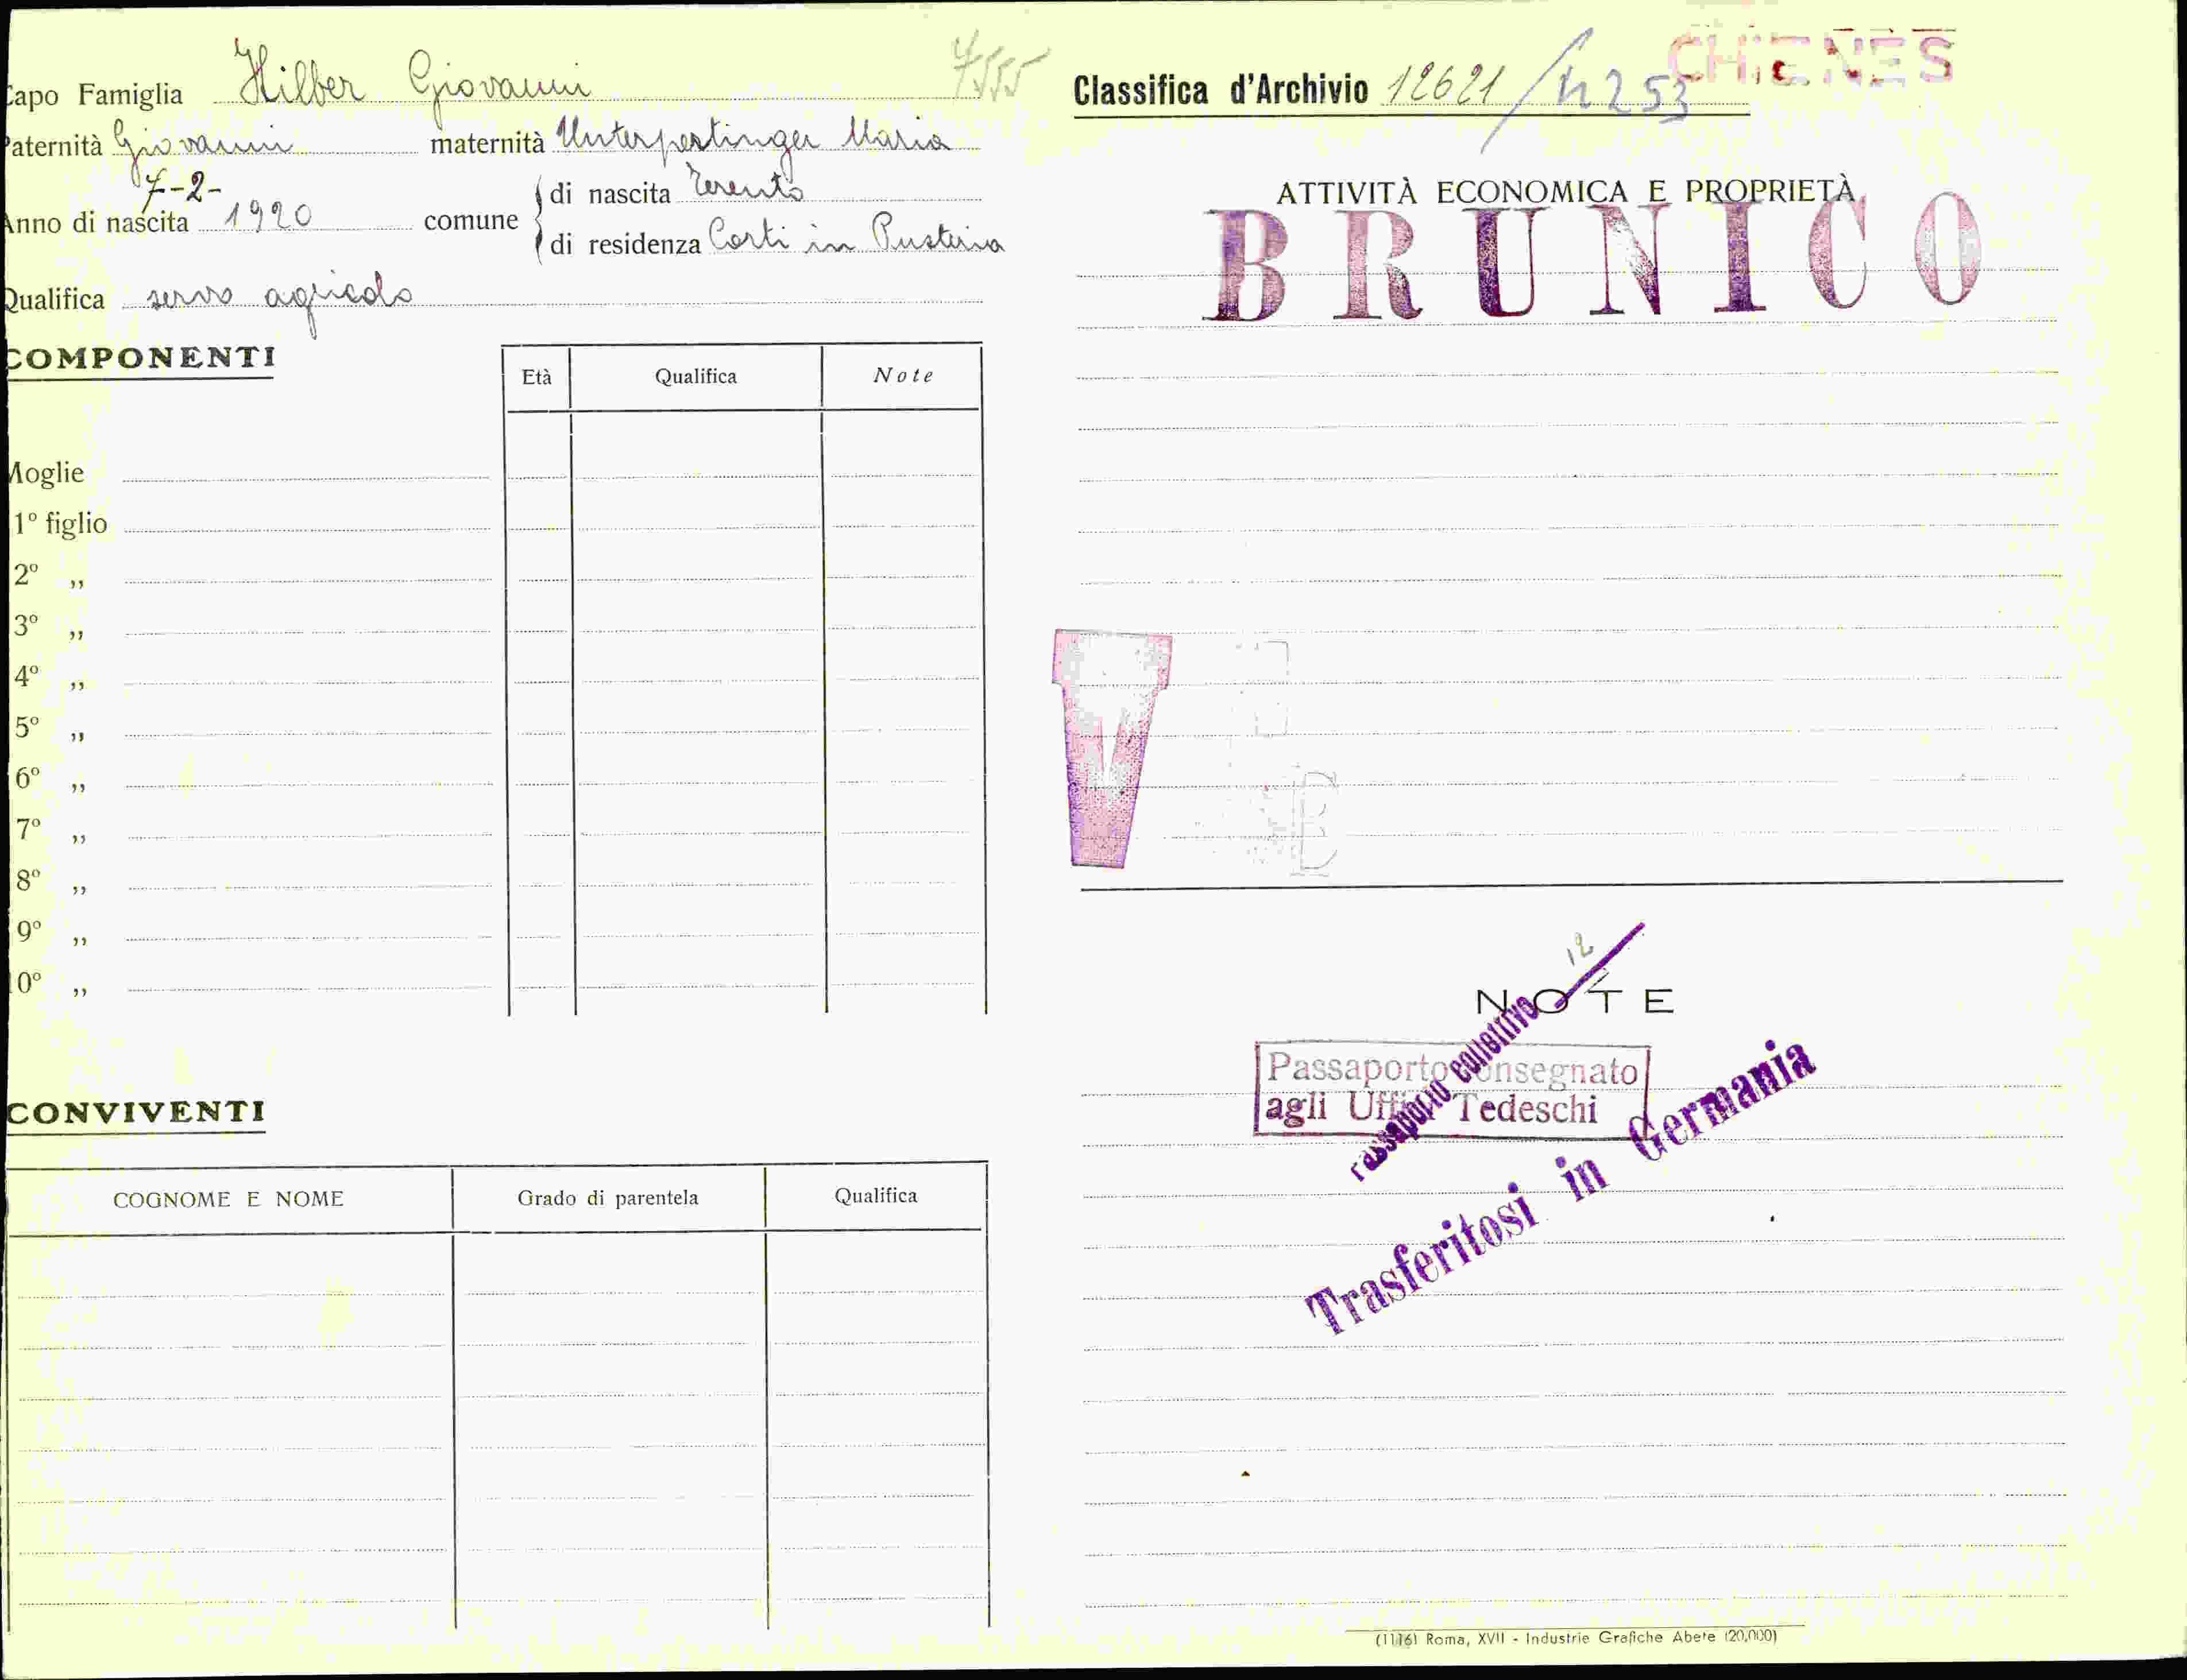 Capo Famiglia Hilber Giovanni 7555
Paternità Giovanni maternità Unterpertinger Maria
7-2-
Anno di nascita 1920 comune di nascita Terento
di residenza Corti in Pusteria
Qualifica servo agricolo
COMPONENTI
Età Qualifica Note
Moglie
1º figlio
2º „
3º „
4º „
5º „
6º „
7º „
8º „
9º „
10º „
CONVIVENTI
COGNOME E NOME Grado di parentela Qualifica
CHIENES
Classifica d'Archivio 12621 / 253
ATTIVITÀ ECONOMICA E PROPRIETÀ
BRUNICO
V
E
12
NOTE
Passaporto consegnato
agli Uffici Tedeschi
Passaporto collettivo
Trasferitosi in Germania
(1116) Roma, XVII - Industrie Grafiche Abete (20,000)